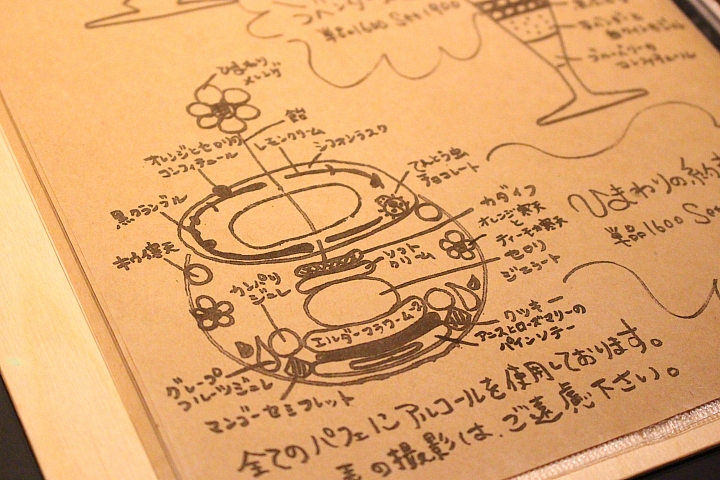 単品1600 Set1900
ブルーベリーの
コンフィチュール
ひまわり
メレンゲ
飴
レモンクリーム
シフォンラスク
オレンジとセロリ
コンフィチュール
てんとう虫
チョコレート
黒クランブル
カダイフ
オレンジ寒天
と
ティーチ寒天
セロリ
ジェラート
ひまわりの
単品1600 Set
カンパリ
ジュレ
ソフト
クリーム
エルダーフラワームース
クッキー
アニスとローズマリーの
パインソテー
グレープ
フルーツジュレ
マンゴーセミフレット
全てのパフェにアルコールを使用しております。
の撮影は、ご遠慮下さい。